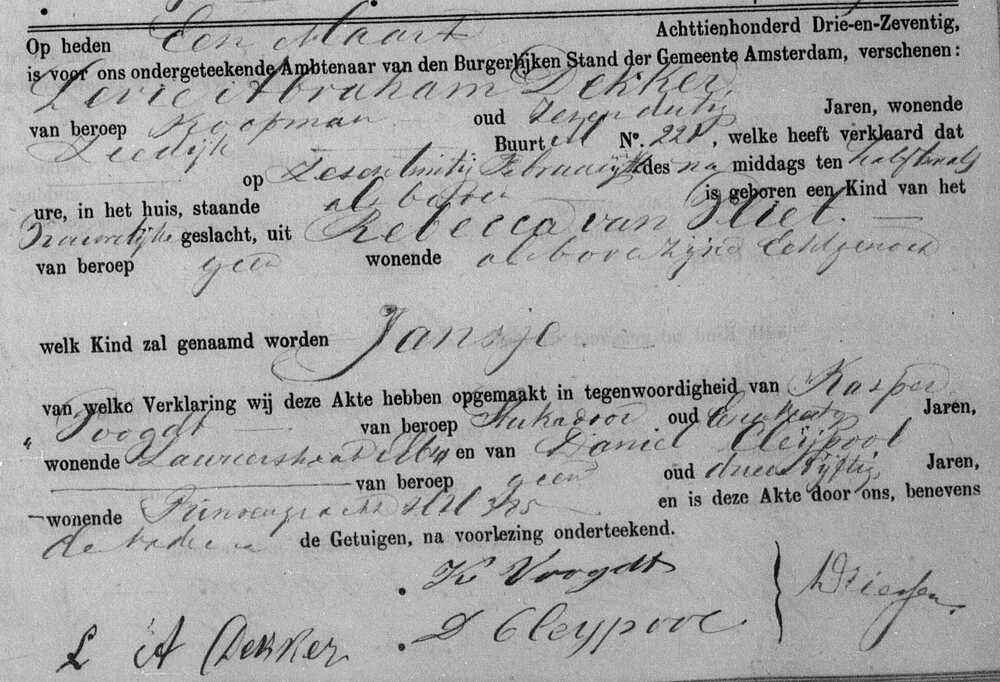 Op heden Een Maart Achttienhonderd Drie-en-Zeventig,
is voor ons ondergeteekende Ambtenaar van den Burgerlijken Stand der Gemeente Amsterdam, verschenen:
Levie Abraham Dekker,
van beroep Koopman oud Jaren, wonende
Zeedijk Buurt No. 221, welke heeft verklaard dat
op Zesentwintig Februarij des na middags ten half twaalf
ure, in het huis, staande als boven is geboren een Kind van het
Vrouwelijke geslacht, uit Rebecca van Vliet.
van beroep geen wonende als boven zijne Echtgenoot
welk Kind zal genaamd worden Jansje
van welke Verklaring wij deze Akte hebben opgemaakt in tegenwoordigheid van Kasper
Voogdt van beroep Stukadoor oud Jaren,
wonende Laurierstraat en van Daniel Cleijpool
van beroep geen oud drieen Vijftig Jaren,
wonende Prinsengracht en is deze Akte door ons, benevens
de vader en de Getuigen, na voorlezing onderteekend.
K Voogdt
D Cleypool
L A Dekker